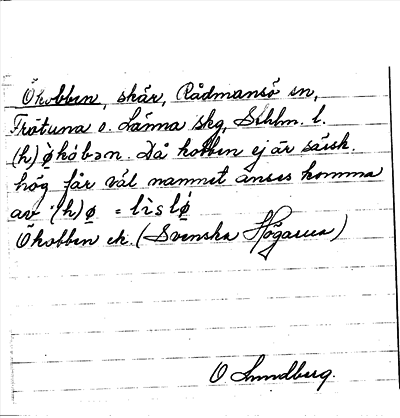 Ökobben, skär, Rådmansö sn,
Frötuna o. Länna skg, Sthlm. l.
(h)ø̀kȯbən. Då kobben ej är särsk.
hög får väl namnet anses komma
av (h)ø = lìslø
Ökobben ek. (Svenska Högarna)
O Lundberg.